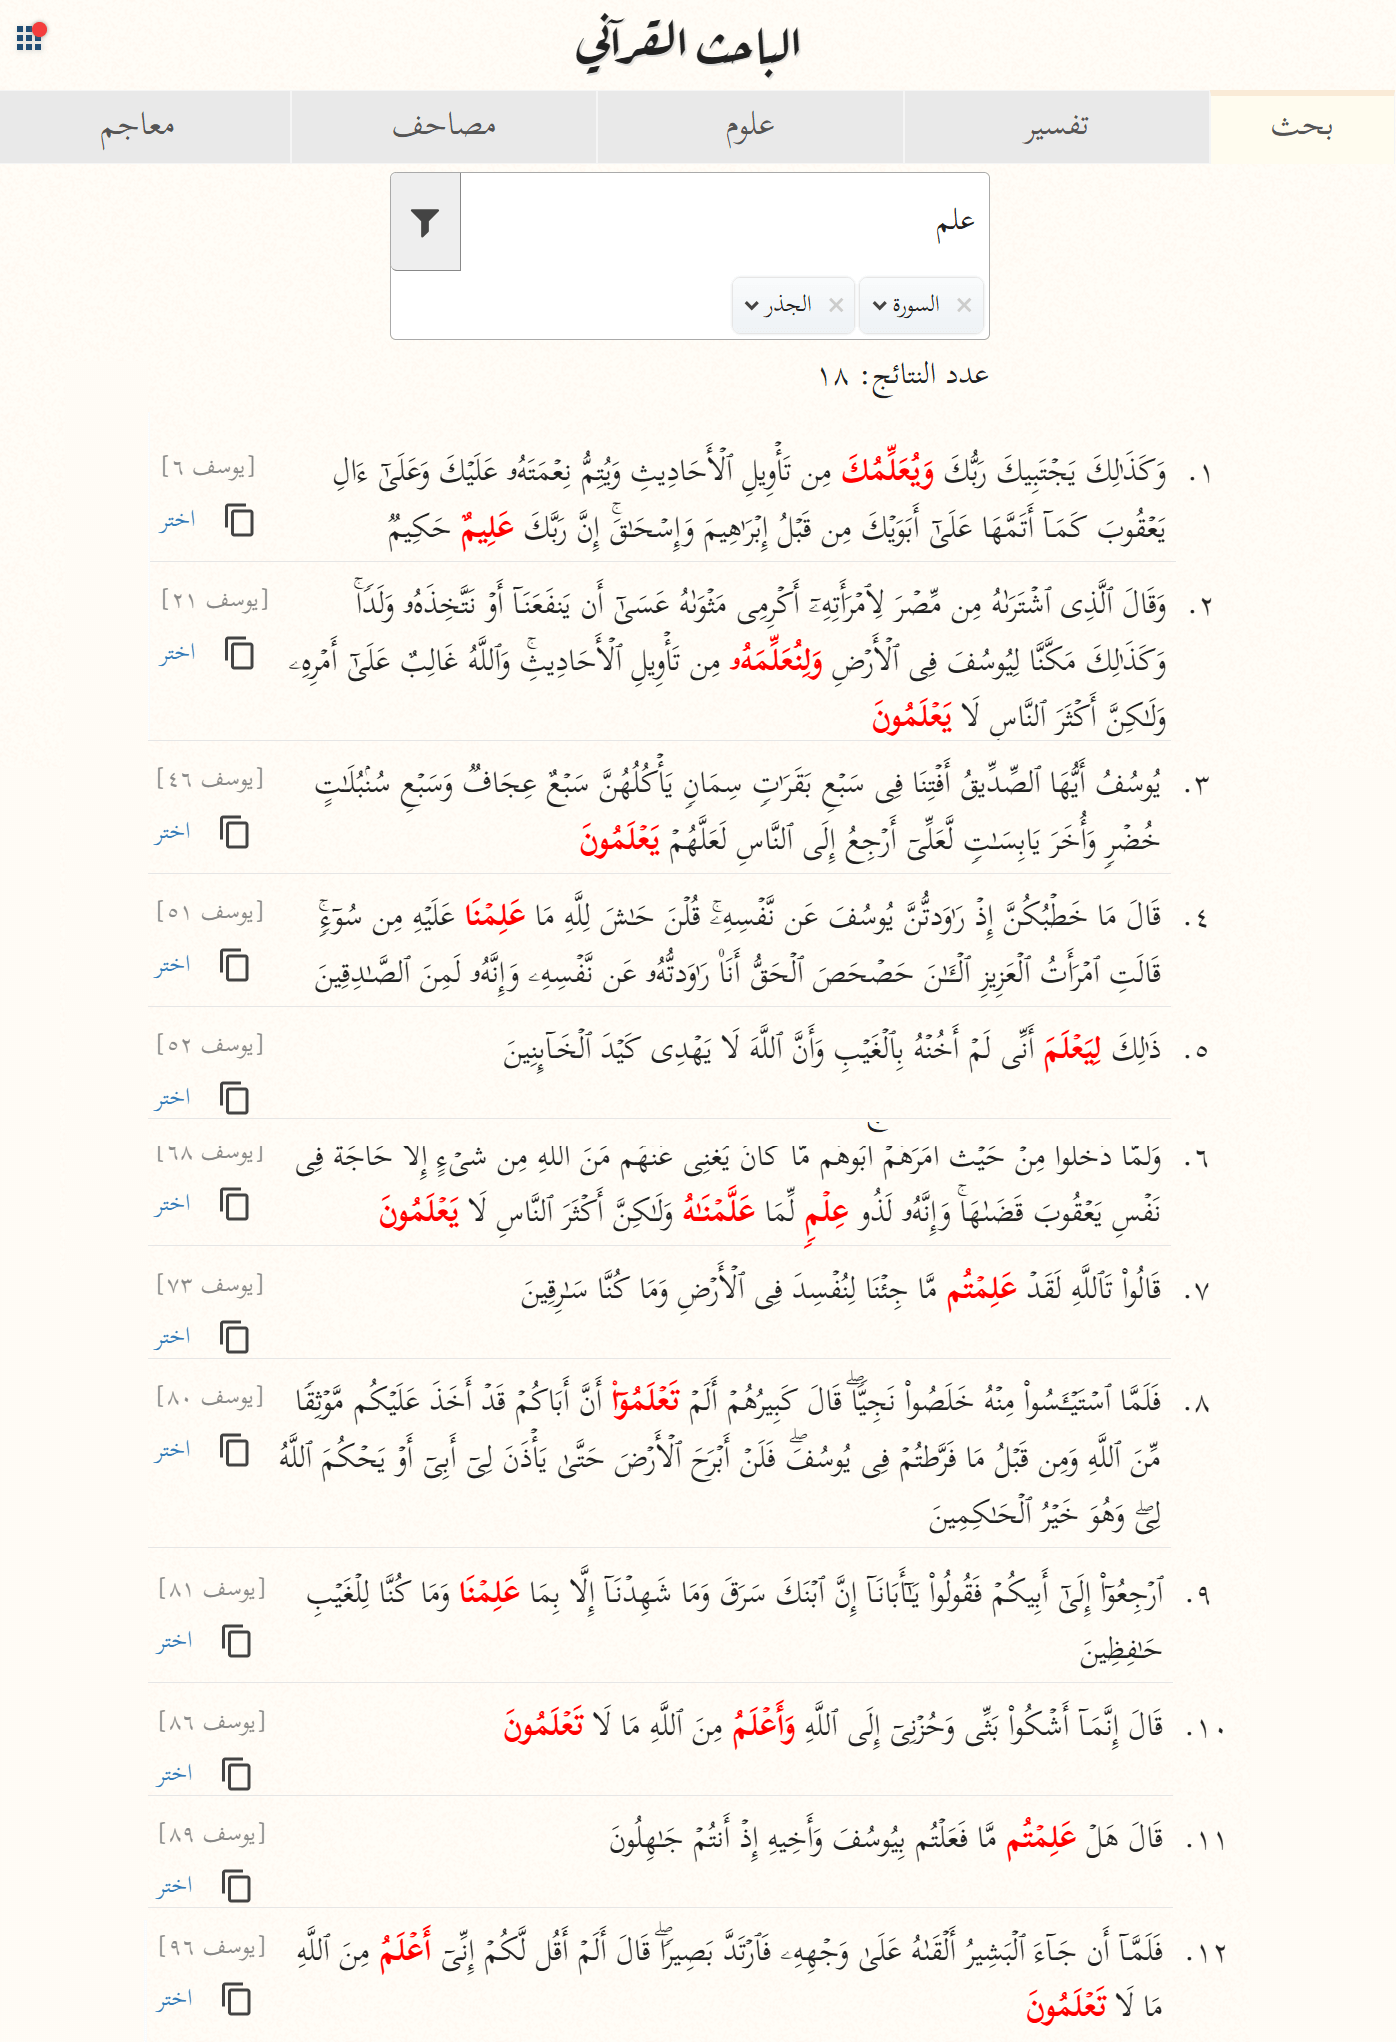 الباحث القرآني
بحث
تفسير
علوم
مصاحف
معاجم
علم
× السورة
× الجذر
عدد النتائج: ١٨
١. وَكَذَٰلِكَ يَجۡتَبِيكَ رَبُّكَ وَيُعَلِّمُكَ مِن تَأۡوِيلِ ٱلۡأَحَادِيثِ وَيُتِمُّ نِعۡمَتَهُۥ عَلَيۡكَ وَعَلَىٰٓ ءَالِ [يوسف ٦]
يَعۡقُوبَ كَمَاۤ أَتَمَّهَا عَلَىٰۤ أَبَوَيۡكَ مِن قَبۡلُ إِبۡرَ ٰ⁠هِيمَ وَإِسۡحَـٰقَۚ إِنَّ رَبَّكَ عَلِيمٌ حَكِيمࣱ اختر
٢. وَقَالَ ٱلَّذِی ٱشۡتَرَىٰهُ مِن مِّصۡرَ لِٱمۡرَأَتِهِۦۤ أَكۡرِمِی مَثۡوَىٰهُ عَسَىٰۤ أَن يَنفَعَنَاۤ أَوۡ نَتَّخِذَهُۥ وَلَدࣰاۚ [يوسف ٢١]
وَكَذَٰلِكَ مَكَّنَّا لِيُوسُفَ فِی ٱلۡأَرۡضِ وَلِنُعَلِّمَهُۥ مِن تَأۡوِيلِ ٱلۡأَحَادِيثِۚ وَٱللَّهُ غَالِبٌ عَلَىٰۤ أَمۡرِهِۦ اختر
وَلَـٰكِنَّ أَكۡثَرَ ٱلنَّاسِ لَا يَعۡلَمُونَ
٣. يُوسُفُ أَيُّهَا ٱلصِّدِّيقُ أَفۡتِنَا فِی سَبۡعِ بَقَرَٰتࣲ سِمَانࣲ يَأۡكُلُهُنَّ سَبۡعٌ عِجَافࣱ وَسَبۡعِ سُنۢبُلَـٰتٍ [يوسف ٤٦]
خُضۡرࣲ وَأُخَرَ يَابِسَـٰتࣲ لَّعَلِّیۤ أَرۡجِعُ إِلَى ٱلنَّاسِ لَعَلَّهُمۡ يَعۡلَمُونَ اختر
٤. قَالَ مَا خَطۡبُكُنَّ إِذۡ رَٰوَدتُّنَّ يُوسُفَ عَن نَّفۡسِهِۦۚ قُلۡنَ حَـٰشَ لِلَّهِ مَا عَلِمۡنَا عَلَيۡهِ مِن سُوۤءࣲۚ [يوسف ٥١]
قَالَتِ ٱمۡرَأَتُ ٱلۡعَزِيزِ ٱلۡـَٔـٰنَ حَصۡحَصَ ٱلۡحَقُّ أَنَا۠ رَٰوَدتُّهُۥ عَن نَّفۡسِهِۦ وَإِنَّهُۥ لَمِنَ ٱلصَّـٰدِقِينَ اختر
٥. ذَٰلِكَ لِيَعۡلَمَ أَنِّی لَمۡ أَخُنۡهُ بِٱلۡغَيۡبِ وَأَنَّ ٱللَّهَ لَا يَهۡدِی كَيۡدَ ٱلۡخَاۤىِٕنِينَ [يوسف ٥٢]
اختر
٦. وَلَمَّا دَخَلُوا مِنۡ حَيۡثُ أَمَرَهُمۡ أَبُوهُم مَّا كَانَ يُغۡنِی عَنۡهُم مِّنَ ٱللَّهِ مِن شَیۡءٍ إِلَّا حَاجَةࣰ فِی [يوسف ٦٨]
نَفۡسِ يَعۡقُوبَ قَضَىٰهَاۚ وَإِنَّهُۥ لَذُو عِلۡمࣲ لِّمَا عَلَّمۡنَـٰهُ وَلَـٰكِنَّ أَكۡثَرَ ٱلنَّاسِ لَا يَعۡلَمُونَ اختر
٧. قَالُوا۟ تَٱللَّهِ لَقَدۡ عَلِمۡتُم مَّا جِئۡنَا لِنُفۡسِدَ فِی ٱلۡأَرۡضِ وَمَا كُنَّا سَـٰرِقِينَ [يوسف ٧٣]
اختر
٨. فَلَمَّا ٱسۡتَيۡـَٔسُوا۟ مِنۡهُ خَلَصُوا۟ نَجِيࣰّاۖ قَالَ كَبِيرُهُمۡ أَلَمۡ تَعۡلَمُوۤا۟ أَنَّ أَبَاكُمۡ قَدۡ أَخَذَ عَلَيۡكُم مَّوۡثِقࣰا [يوسف ٨٠]
مِّنَ ٱللَّهِ وَمِن قَبۡلُ مَا فَرَّطتُمۡ فِی يُوسُفَۖ فَلَنۡ أَبۡرَحَ ٱلۡأَرۡضَ حَتَّىٰ يَأۡذَنَ لِیۤ أَبِیۤ أَوۡ يَحۡكُمَ ٱللَّهُ اختر
لِیۖ وَهُوَ خَيۡرُ ٱلۡحَـٰكِمِينَ
٩. ٱرۡجِعُوۤا۟ إِلَىٰۤ أَبِيكُمۡ فَقُولُوا۟ يَـٰۤأَبَانَاۤ إِنَّ ٱبۡنَكَ سَرَقَ وَمَا شَهِدۡنَاۤ إِلَّا بِمَا عَلِمۡنَا وَمَا كُنَّا لِلۡغَيۡبِ [يوسف ٨١]
حَـٰفِظِينَ اختر
١٠. قَالَ إِنَّمَاۤ أَشۡكُوا۟ بَثِّی وَحُزۡنِیۤ إِلَى ٱللَّهِ وَأَعۡلَمُ مِنَ ٱللَّهِ مَا لَا تَعۡلَمُونَ [يوسف ٨٦]
اختر
١١. قَالَ هَلۡ عَلِمۡتُم مَّا فَعَلۡتُم بِيُوسُفَ وَأَخِيهِ إِذۡ أَنتُمۡ جَـٰهِلُونَ [يوسف ٨٩]
اختر
١٢. فَلَمَّاۤ أَن جَاۤءَ ٱلۡبَشِيرُ أَلۡقَىٰهُ عَلَىٰ وَجۡهِهِۦ فَٱرۡتَدَّ بَصِيرࣰاۖ قَالَ أَلَمۡ أَقُل لَّكُمۡ إِنِّیۤ أَعۡلَمُ مِنَ ٱللَّهِ [يوسف ٩٦]
مَا لَا تَعۡلَمُونَ اختر